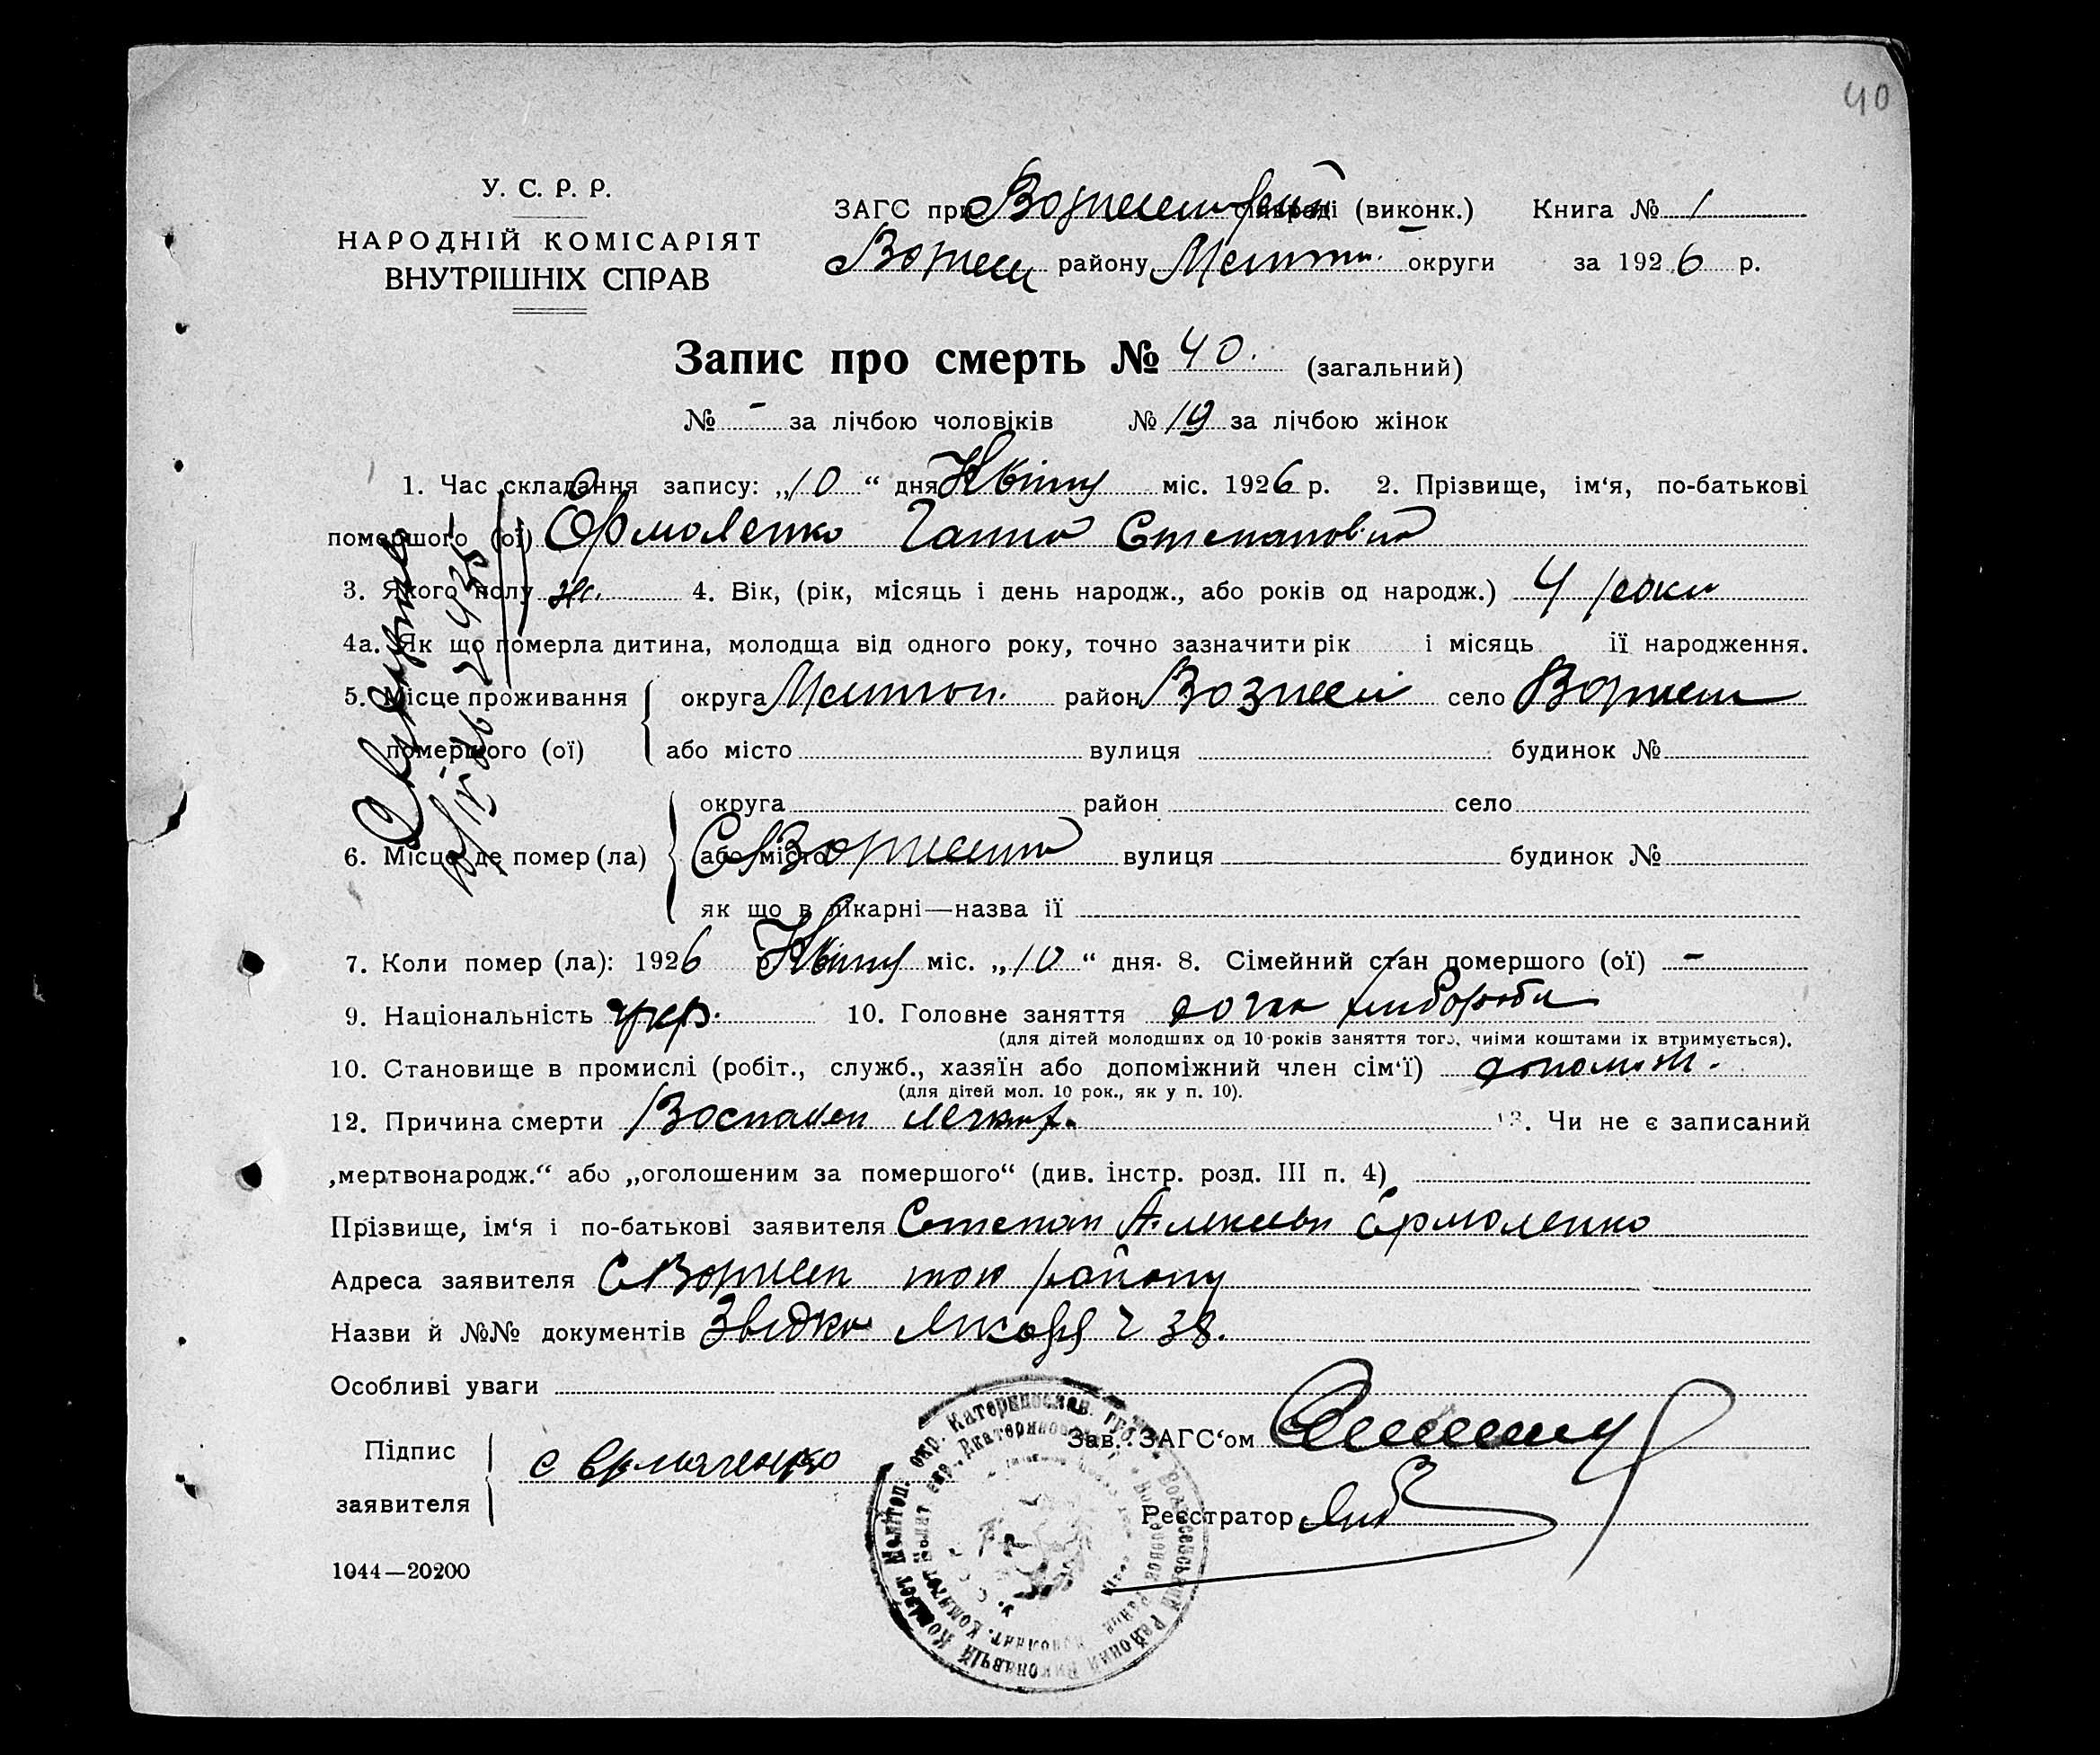 40
У. С. Р. Р.
НАРОДНІЙ КОМІСАРІЯТ
ВНУТРІШНІХ СПРАВ
ЗАГС при (виконк.) Книга № 1
району округи за 1926 р.
Запис про смерть № 40. (загальний)
№ - за лічбою чоловіків № 19 за лічбою жінок
1. Час складання запису: „10“ дня Квітну міс. 1926 р. 2. Прізвище, ім‘я, по-батькові
помершого (ої) Єрмоленко Ганна Степановна
3. Якого полу ж. 4. Вік, (рік, місяць і день народж., або років од народж.) 4 роки
4а. Як що померла дитина, молодща від одного року, точно зазначити рік і місяць ії народження.
5. Місце проживання округа Мелітоп. район Вознесен село Вознесен
помершого (ої) або місто вулиця будинок №
округа район село
6. Місце де помер (ла) або місто С. Вознесенка вулиця будинок №
як що в лікарні—назва ії
7. Коли помер (ла): 1926 р. Квітну міс. „10“ дня. 8. Сімейний стан помершого (ої) -
9. Національність укр. 10. Головне заняття дочка хлібороба
(для дітей молодших од 10 років заняття того, чиїми коштами їх втримується).
10. Становище в промислі (робіт., служб., хазяїн або допоміжний член сім‘ї) допоміж.
(для дітей мол. 10 рок., як у п. 10).
12. Причина смерти Воспален легких. 13. Чи не є записаний
„мертвонародж.“ або „оголошеним за помершого“ (див. інстр. розд. III п. 4)
Прізвище, ім‘я і по-батькові заявителя Степан Алексеев Єрмоленко
Адреса заявителя С Вознесен того району
Назви й №№ документів Звідка Лікаря ч 38.
Особливі уваги
Зав. ЗАГС‘ом
Підпис
заявителя
С Ермоленко
Реєстратор
1044—20200